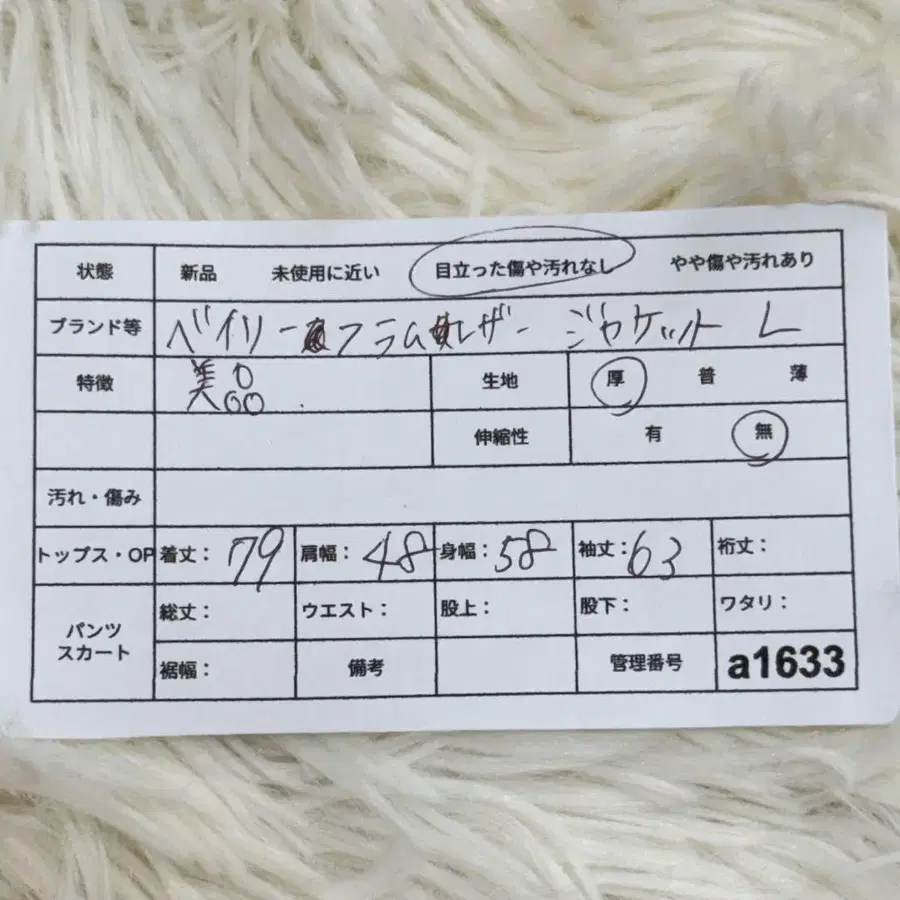 状態 新品 未使用に近い 目立った傷や汚れなし やや傷や汚れあり
ブランド等 ベイリー フラム レザー ジャケット L
特徴 美品 生地 厚 普 薄
伸縮性 有 無
汚れ・傷み
トップス・OP 着丈: 79 肩幅: 48 身幅: 58 袖丈: 63 裄丈:
パンツ スカート 総丈: ウエスト: 股上: 股下: ワタリ:
裾幅: 備考 管理番号 a1633